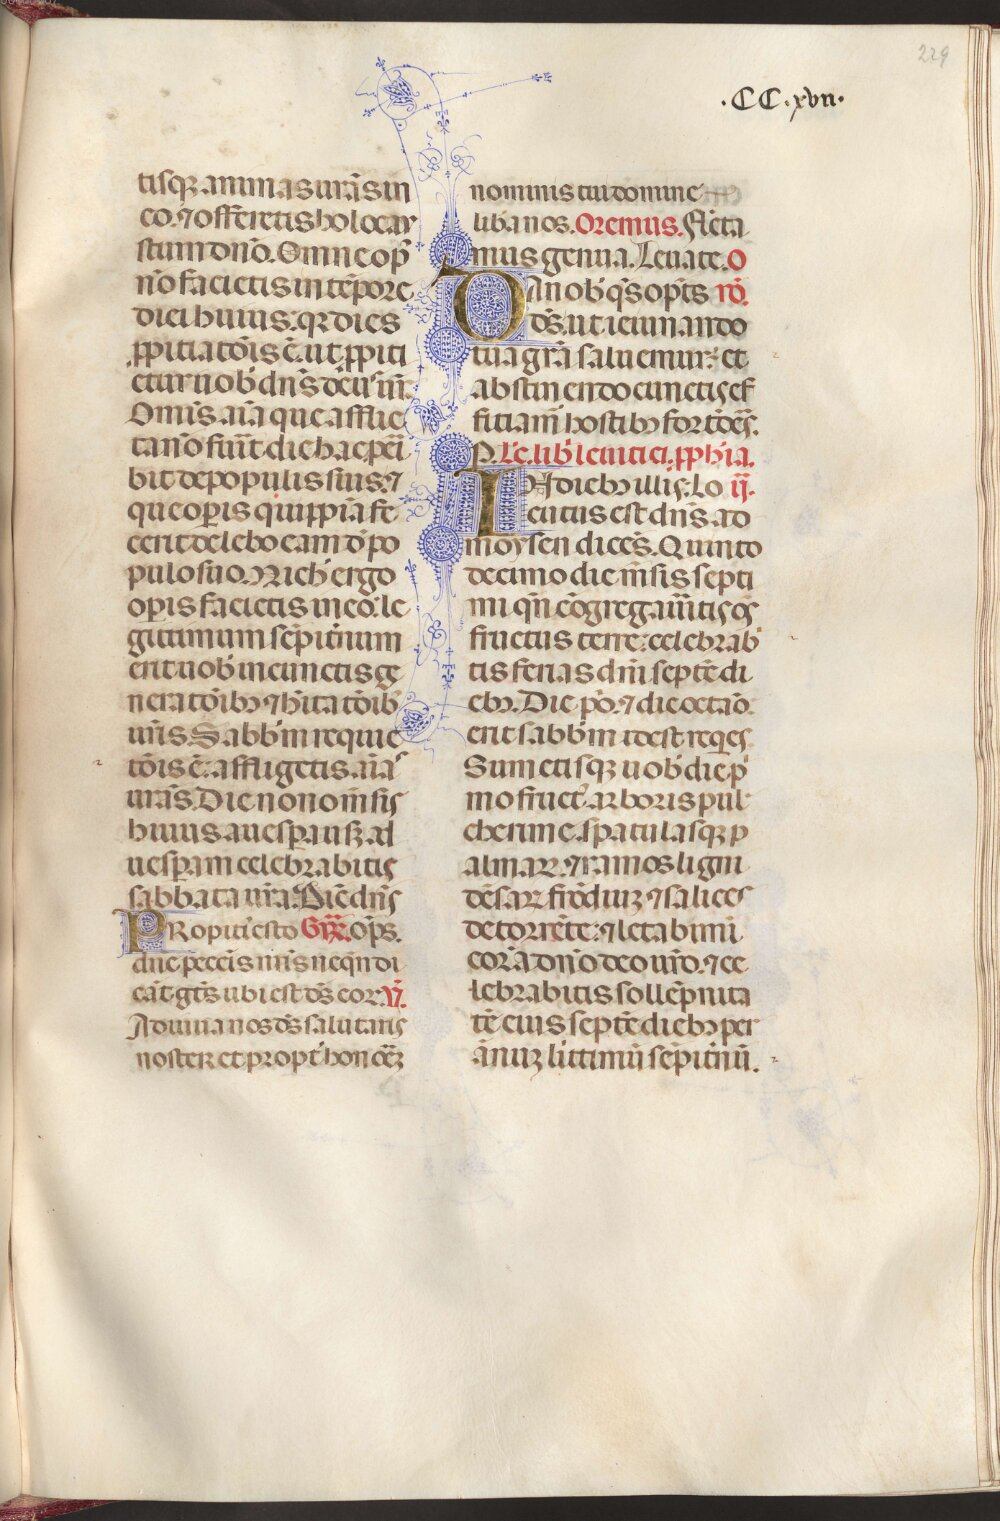 229
·CC·xvn·
tisq; animas ur̄as in
eo. ⁊ offeretis holocau
stum dn̄o. Omne op̄
nō facietis in tēpore
diei huius: qr dies
ꝓpitiatōis ē. ut ꝓpiti
etur uob dn̄s deus ur̄.
Omīs aīa que afflic
ta nō fūit die hac peri
bit de populis suis: ⁊
que operis quippiā fe
cerit delebo eam d̄ po
pulo suo. Nich ergo
operis facietis in eo: le
gittimum sēpitnum
erit uob in cunctis ge
neratōib; ⁊ hītatōib
ur̄is. Sabb̄m requie
tōis ē: affligetis aīas
ur̄as. Die nono mēsis
huius a uespa usq; ad
uesperam celebrabitis
sabbata ur̄a. Dic̄ dn̄s
PRopiti esto Gr̄. Oп̄s.
dn̄e pecc̄is nr̄is neqn̄ di
cāt gt̄es ubi est d̄s eor. V̄.
Adiuua nos d̄s salutaris
noster et propt̄ honorē
nominis tui domine
libanos. Oremus. Flēta
mus genua. Leuate. O
DAnob qs op̄ts rō.
d̄s. ut ieiunando
tua grā satiemur: et
abstinendo cunctis ef
ficiam̄ hostib; fortōes.
P. Lc. lib leuitici. ꝓphīa.
IN dieb; illis. Lo ij.
cutus est dn̄s ad
moysen dicēs. Quinto
decimo die mēsis septi
mi qn̄ cōgregauītis os
fructus terre: celebrab
tis ferias dn̄i septē di
eb;. Die p̄o. ⁊ die octāo
erit sabb̄m id est reqes.
Sumetisq; uob die p
mo fruct̄. arboris pul
cherime. spatulasq; p
almaꝝ. ⁊ ramos ligni
dēsaꝝ frōdiuꝫ ⁊ salices
de torrēte: ⁊ letabimi
corā dn̄o deo ur̄o. ⁊ ce
lebrabitis sollēpnita
tē eius septē dieb; per
ānuꝫ littimū sēpitnū.